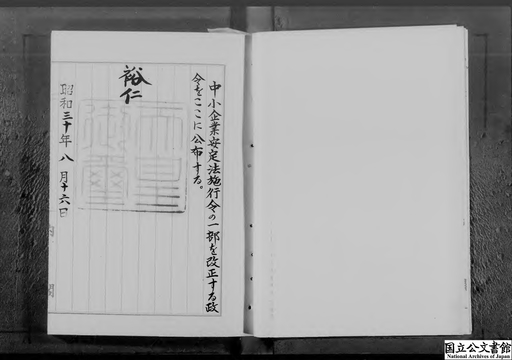 中小企業安定法施行令の一部を改正する政
令をここに公布する。
裕仁
天皇
御璽
昭和三十年八月十六日
国立公文書館
National Archives of Japan